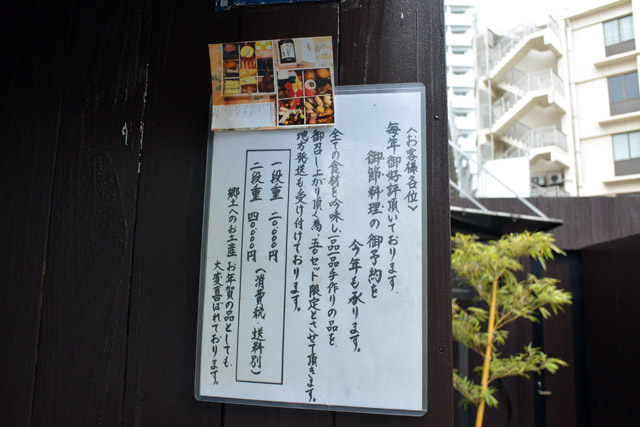 〈お客様各位〉
毎年御好評頂いております、
御節料理の御予約を
今年も承ります。
全ての食材を吟味し、一品一品手作りの品を
御召し上がり頂く為、五〇セット限定とさせて頂きます。
地方発送も受け付けております。
一段重 二〇、〇〇〇円
二段重 四〇、〇〇〇円
(消費税 送料別)
郷土へのお土産
お年賀の品としても
大変喜ばれております。